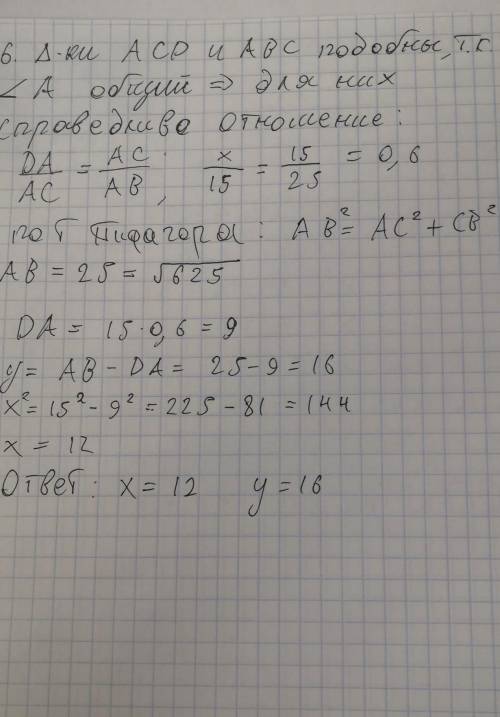 6. Δ-ки ACD и ABC подобны, т.к
∠A общий ⇒ для них
справедливо отношение:
DA/AC = AC/AB, x/15 = 15/25 = 0,6
по т Пифагора: AB² = AC² + CB²
AB = 25 = √625
DA = 15·0,6 = 9
y = AB - DA = 25-9 = 16
x² = 15² - 9² = 225 - 81 = 144
x = 12
Ответ: x = 12 y = 16